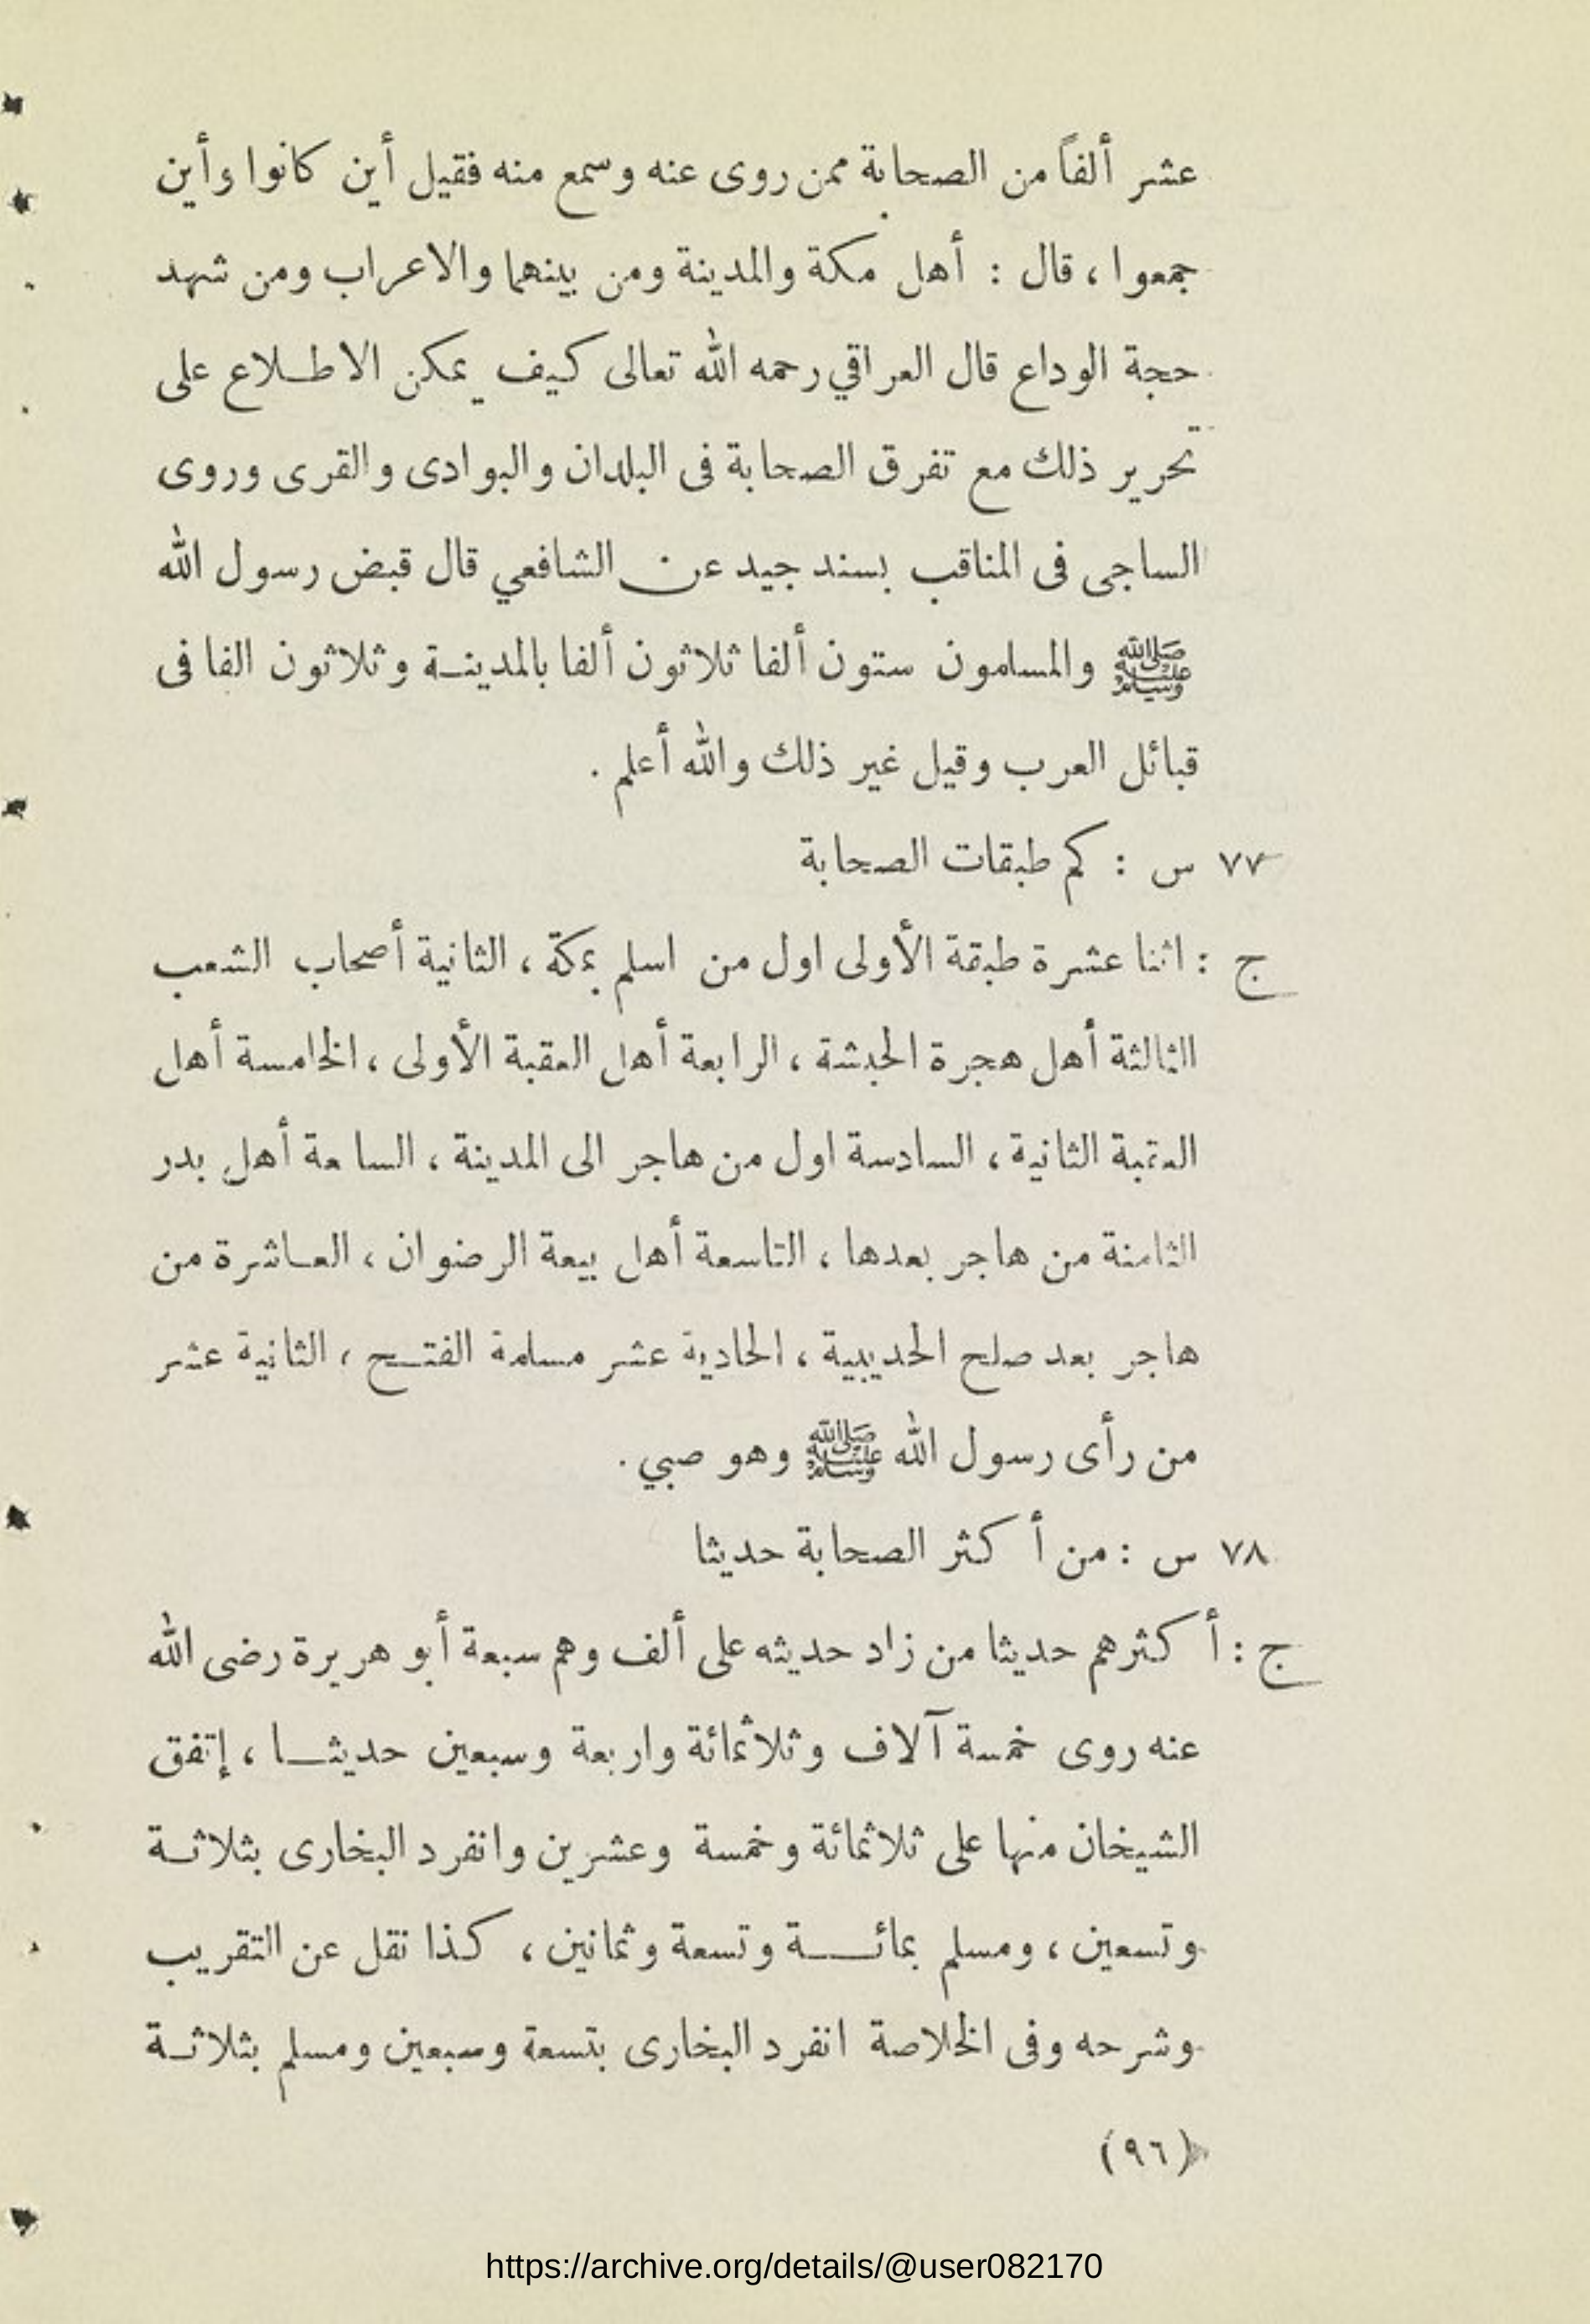 عشر ألفاً من الصحابة ممن روى عنه وسمع منه فقيل أين كانوا وأين
جمعوا ، قال : أهل مكة والمدينة ومن بينهما والاعراب ومن شهد
حجة الوداع قال العراقي رحمه الله تعالى كيف يمكن الاطـلاع على
تحرير ذلك مع تفرق الصحابة فى البلدان والبوادى والقرى وروى
الساجى فى المناقب بسند جيد عن الشافعي قال قبض رسول الله
ﷺ والمسلمون ستون ألفا ثلاثون ألفا بالمدينـة وثلاثون الفا فى
قبائل العرب وقيل غير ذلك والله أعلم .
٧٧ س : كم طبقات الصحابة
ج : اثنا عشرة طبقة الأولى اول من اسلم بمكة ، الثانية أصحاب الشعب
الثالثة أهل هجرة الحبشة ، الرابعة أهل العقبة الأولى ، الخامسة أهل
العقبة الثانية ، السادسة اول من هاجر الى المدينة ، السابعة أهل بدر
الثامنة من هاجر بعدها ، التاسعة أهل بيعة الرضوان ، العـاشرة من
هاجر بعد صلح الحديبية ، الحادية عشر مسلمة الفتـح ، الثانية عشر
من رأى رسول الله ﷺ وهو صبي .
٧٨ س : من أكثر الصحابة حديثا
ج : أكثرهم حديثا من زاد حديثه على ألف وهم سبعة أبو هريرة رضى الله
عنه روى خمسة آلاف وثلاثمائة واربعة وسبعين حديثـا ، إتفق
الشيخان منها على ثلاثمائة وخمسة وعشرين وانفرد البخارى بثلاثـة
وتسعين ، ومسلم بمائـــة وتسعة وثمانين ، كذا نقل عن التقريب
وشرحه وفى الخلاصة انفرد البخارى بتسعة وسبعين ومسلم بثلاثـة
(٩٦)
https://archive.org/details/@user082170